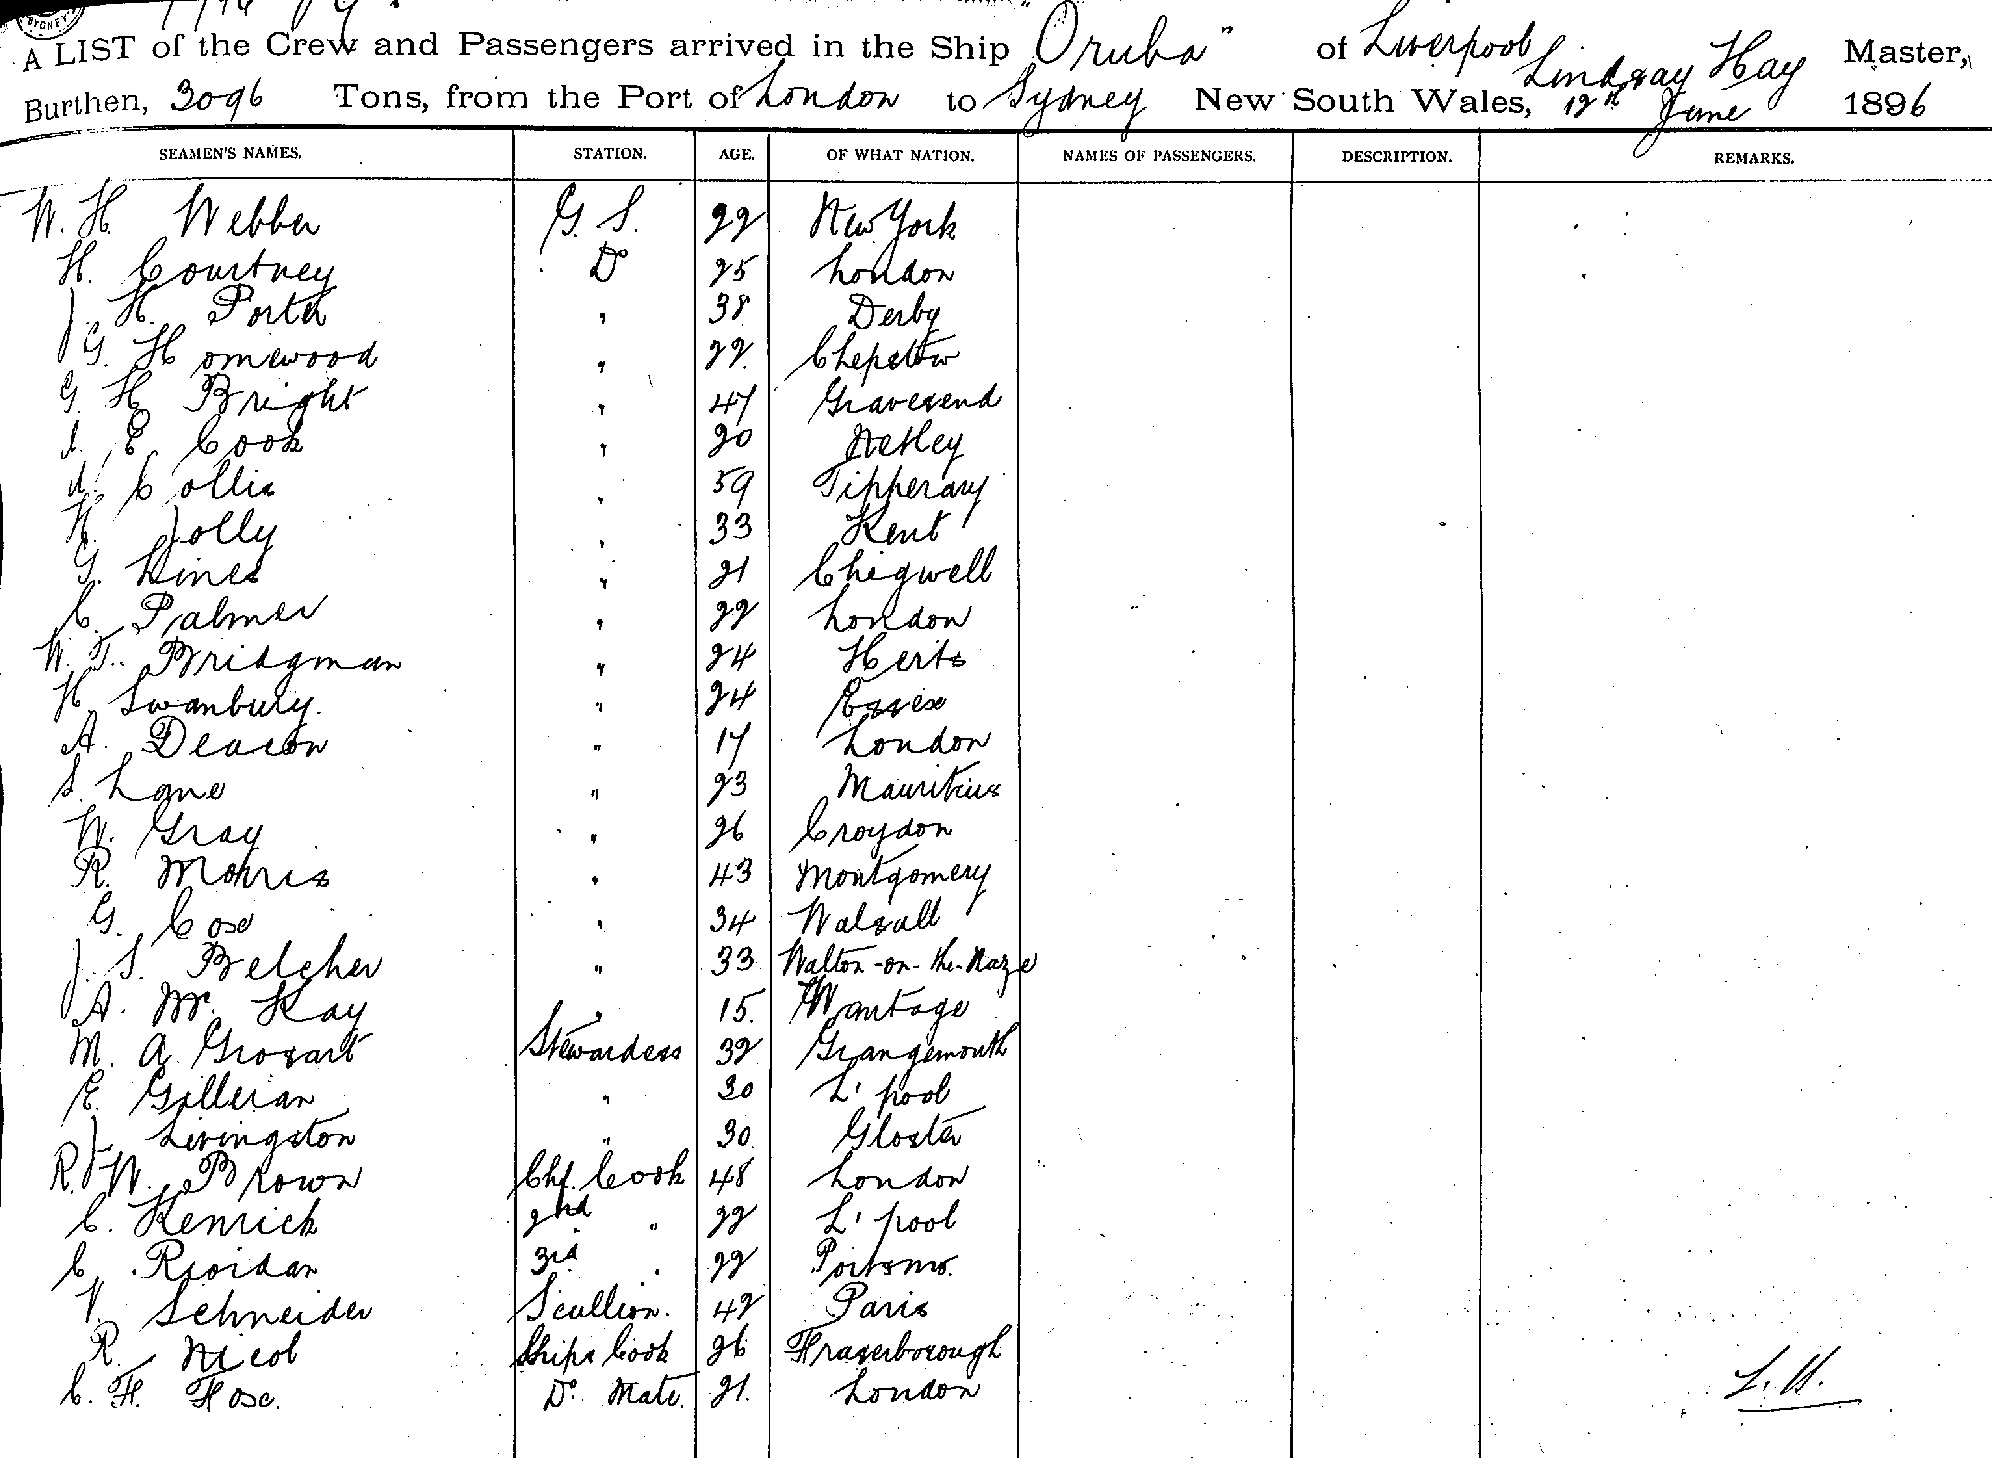 A LIST of the Crew and Passengers arrived in the Ship "Oruba" of Liverpool Lindsay Hay Master,
Burthen, 3096 Tons, from the Port of London to Sydney New South Wales, 12th June 1896
SEAMEN'S NAMES. STATION. AGE. OF WHAT NATION. NAMES OF PASSENGERS. DESCRIPTION. REMARKS.
W. H. Webber G. S. 22 New York
H. Courtney Do 25 London
J. H. Porter " 38 Derby
G. Homewood " 22. Chepstow
G. H. Bright " 47 Gravesend
E. Cook " 20 Netley
Collis " 59 Tipperary
H. Jolly " 33 Kent
G. Hines " 21 Chigwell
C. Palmer " 22 London
W. T. Bridgman " 24 Herts
H. Swanbury. " 24 Essex
A. Deacon " 17 London
S. Lane " 23 Mauritius
W. Gray " 26 Croydon
R. Morris " 43 Montgomery
G. Cox " 34 Walsall
J. S. Belcher " 33 Walton-on-the-Naze
A. Mc Kay " 15. Wantage
M. A. Grosart Stewardess 32 Grangemouth
E. Gilleran " 30 L'pool
J. Livingston " 30. Gloster
R. W. Brown Chf. Cook 48 London
C. Kenrick 2nd " 22 L'pool
C. Riordan 3rd " 22 Portsmo.
V. Schneider Scullion. 42 Paris
R. Nicol Ships Cook 26 Fraserborough
C. F. Fose. Do. Mate. 21. London
L. H.